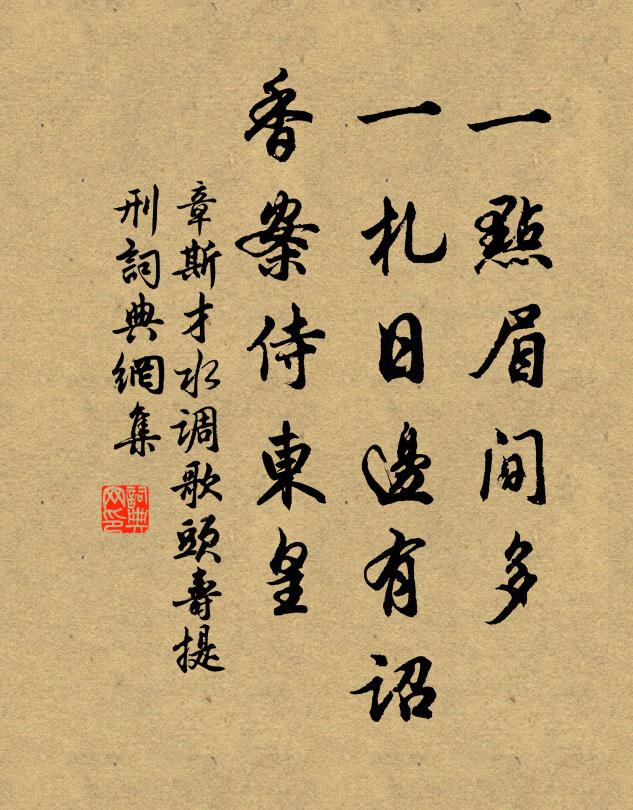 一點眉間多
一札日邊有詔
香案侍東皇
章斯才水调歌頭壽提
刑詞典網集
詞典網印